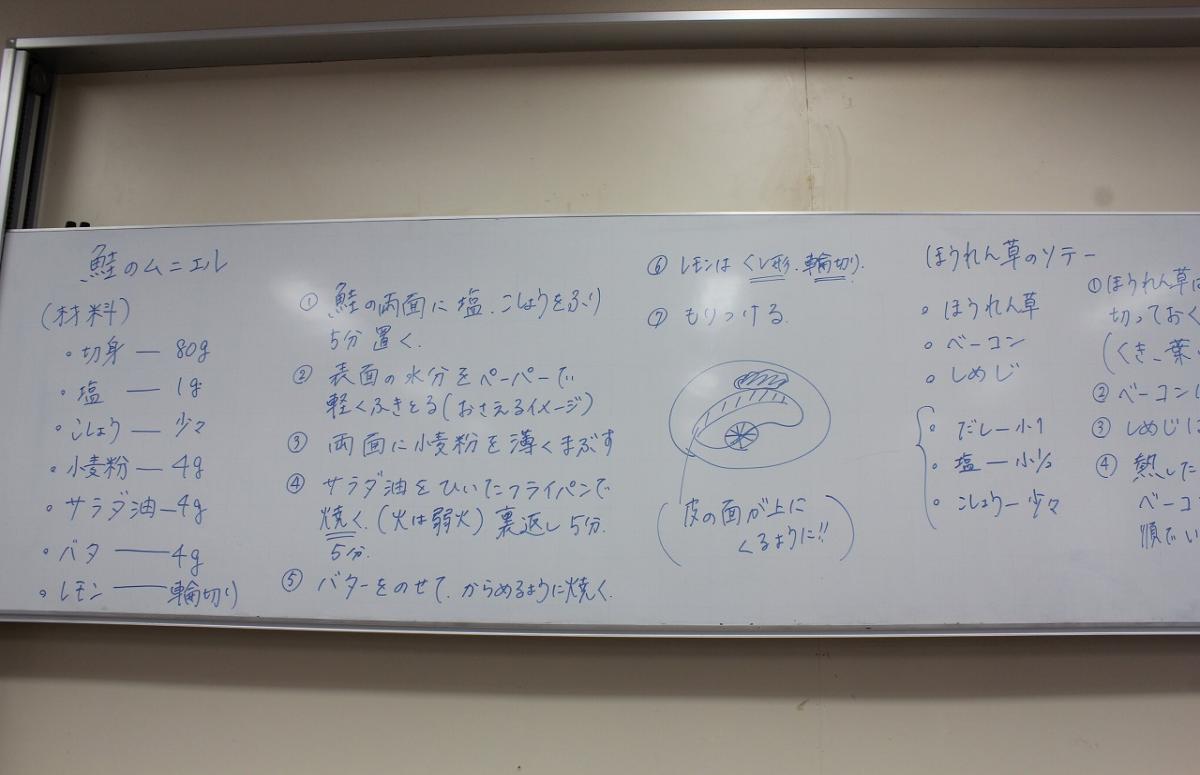 鮭のムニエル
(材料)
・切身 ― 80g
・塩 ― 1g
・こしょう ― 少々
・小麦粉 ― 4g
・サラダ油 ― 4g
・バタ ― 4g
・レモン ― 輪切り
① 鮭の両面に塩、こしょうをふり
5分置く。
② 表面の水分をペーパーで
軽くふきとる(おさえるイメージ)
③ 両面に小麦粉を薄くまぶす
④ サラダ油をひいたフライパンで
焼く。(火は弱火) 裏返し5分。
5分。
⑤ バターをのせて、からめるように焼く。
⑥ レモンは くし形、輪切り。
⑦ もりつける。
(皮の面が上に
くるように!!)
ほうれん草のソテー
・ほうれん草
・ベーコン
・しめじ
・だし ― 小1
・塩 ― 小1/2
・こしょう ― 少々
① ほうれん草は
切っておく
(くき、葉
② ベーコン
③ しめじは
④ 熱した
ベーコ
順でい